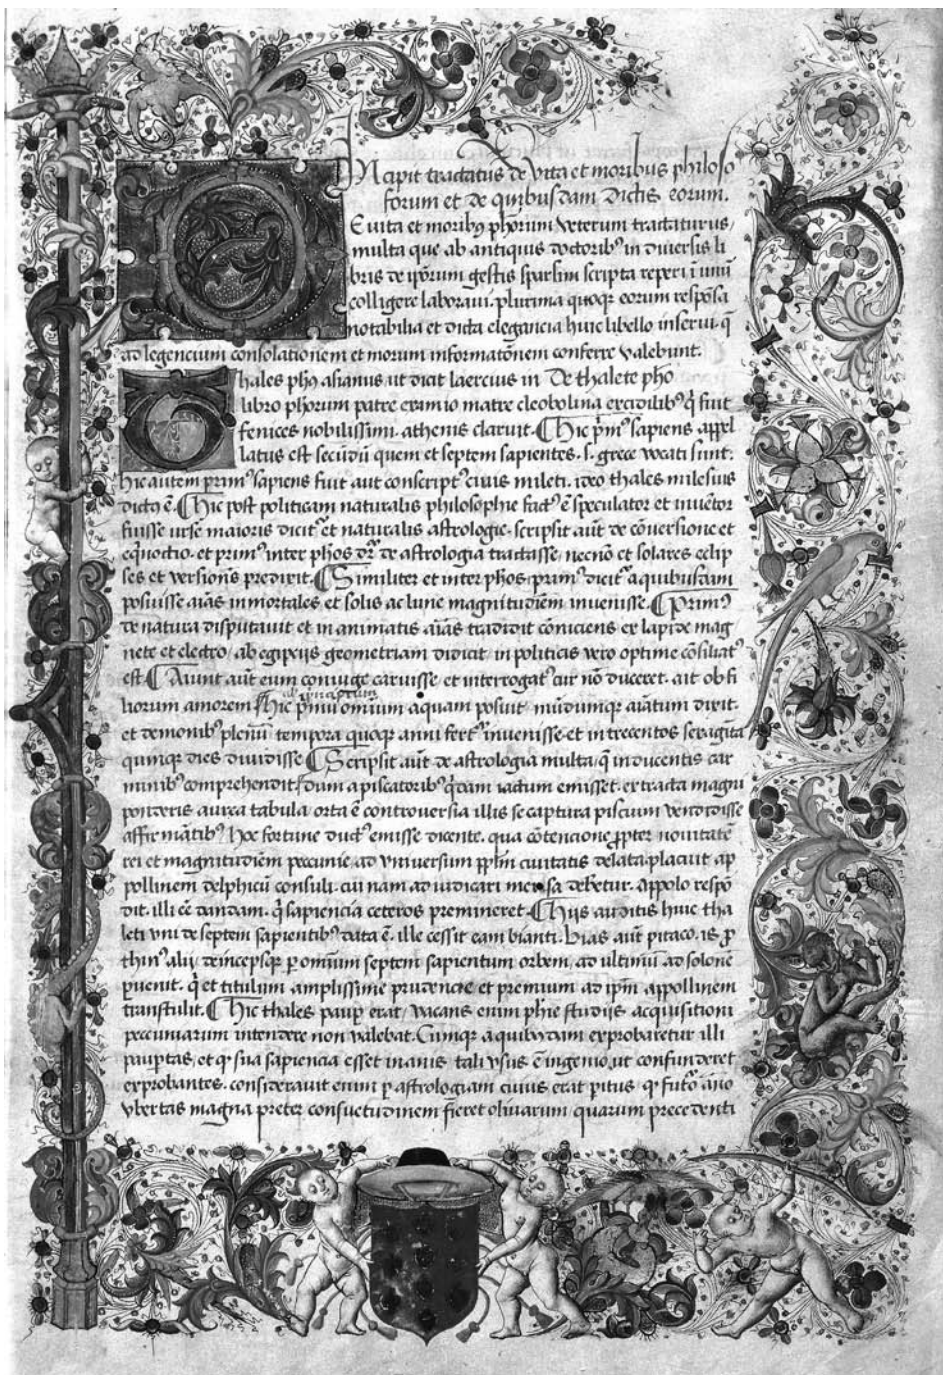 Incipit tractatus de vita et moribus philoso
forum et de quibusdam dictis eorum.
De uita et moribꝫ ph̄orum veterum tractaturus,
multa que ab antiquis doctoribꝰ in diversis li
bris de ip̄orum gestis sparsim scripta reperi ī unū
colligere laboravi. plurima quoqꝫ eorum respōsa
notabilia et dicta elegancia huic libello inserui. q̄
ad legencium consolationem et morum informatōnem conferre valebunt.
Thales ph̄s asianus ut dicit laercius in De thalete pho
libro ph̄orum patre examio matre cleobolina ex edilibꝰ q̄ fuit
fenices nobilissimi. athenis claruit. Hic p̄mꝰ sapiens appel
latus est secūdū quem et septem sapientes. s. grece vocati sunt.
hic autem primꝰ sapiens fuit aut conscriptꝰ civis mileti. ideo thales milesius
dictꝰ ē. Hic post politicam naturalis philosophie factꝰ ē speculator et inuētor
fuisse urse maioris dicitᷣ et naturalis astrologie. scripsit aūt de cōversione et
equinoctio. et primꝰ inter ph̄os dr̄ de astrologia tractasse. necnō et solares eclip
ses et versionēs predixit. Similiter et inter ph̄os primꝰ dicitᷣ a quibusdam
posuisse aīas inmortales et solis ac lune magnitudīem invenisse. Primꝰ
de natura disputavit et in animatis aīas tradidit cōniciens ex lapide mag
nete et electro. ab egipciis geometriam didicit. in politicis vero optime cōsiliatꝰ
est. Aiunt aūt eum coniuge caruisse et interrogatꝰ cur nō duceret. ait ob fi
liorum amorem Hic p̄mū omnium aquam posuit mūdumqꝫ aīatum dixit.
et demonibꝰ plenū tempora quoqꝫ anni fertᷣ invenisse et in trecentos sexagīta
quinqꝫ dies divisisse Scripsit aūt de astrologia multa q̄ in ducentis car
minibꝰ comprehendit. Dum a piscatoribꝰ q̄dam iactum emisset. extracta magni
ponderis aurea tabula. orta ē controversia illis se captura piscium vendidisse
affirmātibꝰ hoc fortune ductꝰ emisse dicente. qua cōtencione propter novitatē
rei et magnitudīem pecunie. ad vniversum pp̄lm civitatis delata. placuit ap
pollinem delphicū consuli. cui nam adiudicari mensa debetur. Appolo respō
dit. illi eē dandam. q̄ sapiencia ceteros premineret. Hiis auditis huic tha
leti uni de septem sapientibꝰ data ē. ille cessit eam bianti. bias aūt pitaco. is ꝓ
thinꝰ alii deincepsqꝫ ꝑ omnium septem sapientum orbem. ad ultimū ad solonē
ꝑuenit. q̄ et titulum amplissime prudencie et premium ad ip̄m appollinem
transtulit. Hic thales paup erat. vacans enim ph̄ie studiis acquisitioni
pecuniarum intendere non valebat. Cumqꝫ a quibꝰdam exprobaretur illi
paupertas. et qꝫ sua sapiencia esset inanis tali usus ē ingenio. ut confunderet
exprobantes. consideravit enim ꝑ astrologiam cuius erat ꝑitus qꝫ futo āno
ubertas magna preter consuetudinem fieret olivarum quarum precedenti